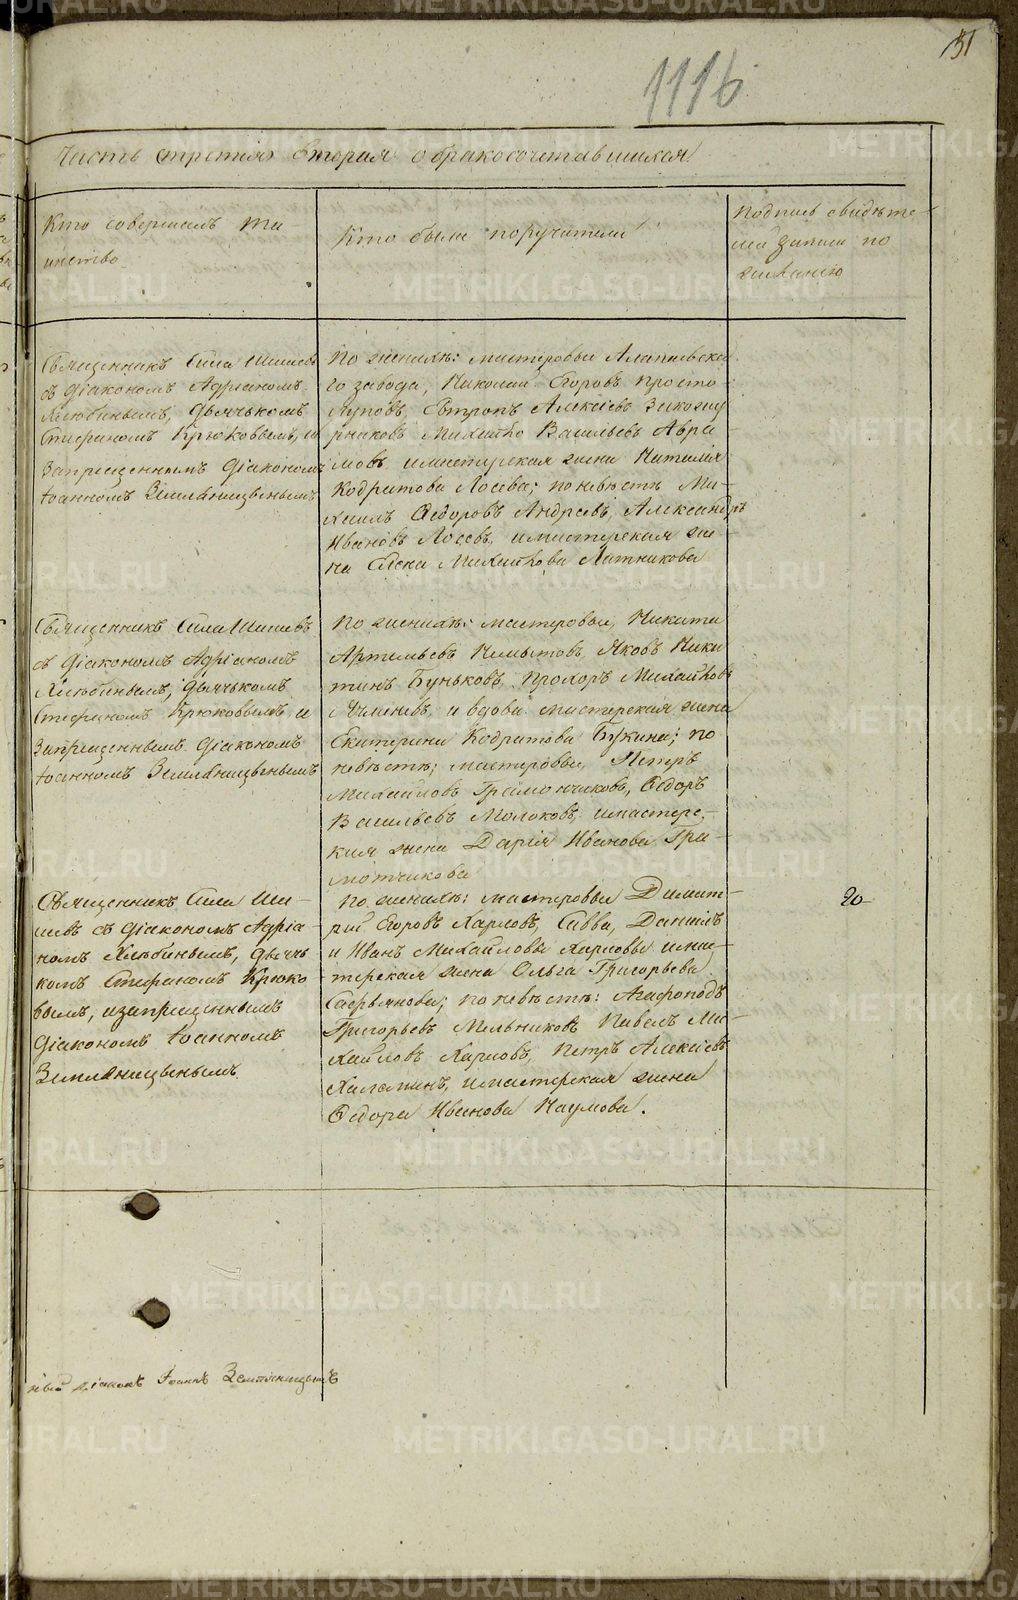 151
1116
Часть третія вторая о бракосочетавшихся
Кто совершалъ та-
инство
Кто были поручители
Подпись свидѣте-
лей записи по
желанію
Священникъ Сила Шишевъ
съ діакономъ Адріаномъ
Хлюбинымъ, дьячькомъ
Стефаномъ Крюковымъ, и
Запрещеннымъ діакономъ
Іоанномъ Земляницынымъ
По женихѣ: мастеровыи Алапаевска-
го завода, Николай Егоровъ Просто-
луповъ,
Михайло Васильевъ Авра-
мовъ имастерская жена Наталія
Кодратова Лосева; по невѣстѣ Ми-
хаилъ Ѳедоровъ Андреевъ, Александръ
Ивановъ Лосевъ, имастерская же-
на Елена Михайлова Латникова
Священникъ Сила Шишевъ
съ діакономъ Адріаномъ
Хлюбинымъ, дьячькомъ
Стефаномъ Крюковымъ и
Запрещеннымъ діакономъ
Іоанномъ Земляницынымъ
По женихѣ: мастеровыи, Никита
Артемьевъ Немытовъ, Яковъ Ники-
тинъ Буньковъ Прохоръ Михайловъ
Ячменевъ, и вдова мастерская жена
Екатерина Кодратова Букина; по
невѣстѣ; мастеровыи, Петръ
Михайловъ Грамотчиковъ, Ѳедоръ
Васильевъ Молоковъ, имастерс-
кая жена Дарія Иванова Гра-
мотчикова
Священникъ Сила Ши-
шевъ съ діакономъ Адріа-
номъ Хлюбинымъ, дьячь-
комъ Стефаномъ Крюко-
вымъ, изапрещеннымъ
діакономъ Іоанномъ
Земляницынымъ
По женихѣ: мастеровыи Димит-
рій Егоровъ Харловъ, Савва, Даніилъ
и Иванъ Михайловы Харловы имас-
терская жена Ольга Григорьева
по невѣстѣ: Агафоподъ
Григорьевъ Мельниковъ Павелъ Ми-
хайловъ Харловъ, Петръ Алексіевъ
Халапинъ, имастерская жена
Ѳедора Иванова Наумова.
20
ный діаконъ Іоаннъ Земляницынъ
METRIKI.GASO-URAL.RU